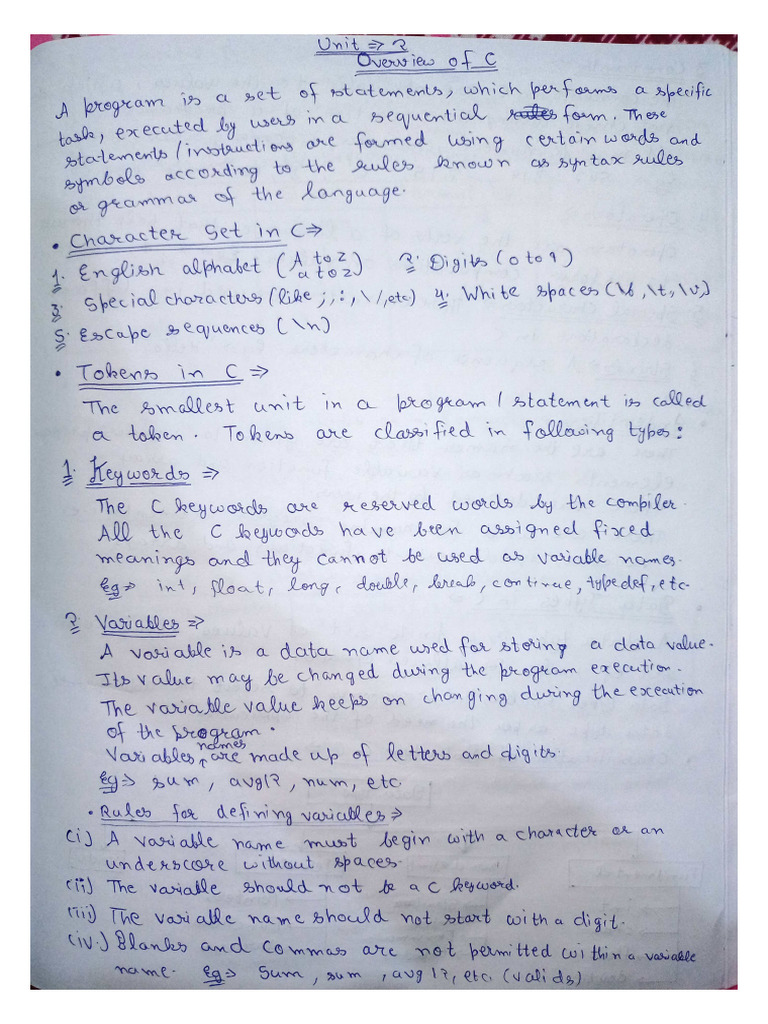 Unit ⇒ 2
Overview of C
A program is a set of statements, which performs a specific
task, executed by users in a sequential form. These
statements/instructions are formed using certain words and
symbols according to the rules known as syntax rules
or grammar of the language.
• Character Set in C ⇒
1. English alphabet (A to Z a to z) 2. Digits (0 to 9)
3. Special characters (like ;, :, \ /, etc) 4. White spaces (\b, \t, \v)
5. Escape sequences (\n)
• Tokens in C ⇒
The smallest unit in a program / statement is called
a token. Tokens are classified in following types:
1. Keywords ⇒
The C keywords are reserved words by the compiler.
All the C keywords have been assigned fixed
meanings and they cannot be used as variable names.
eg ⇒ int, float, long, double, break, continue, typedef, etc.
2. Variables ⇒
A variable is a data name used for storing a data value.
Its value may be changed during the program execution.
The variable value keeps on changing during the execution
of the program.
Variables names are made up of letters and digits
eg ⇒ sum, avg12, num, etc.
• Rules for defining variables ⇒
(i) A variable name must begin with a character or an
underscore without spaces.
(ii) The variable should not be a C keyword.
(iii) The variable name should not start with a digit.
(iv.) Blanks and commas are not permitted within a variable
name. eg ⇒ Sum, sum, avg12, etc. (valids)